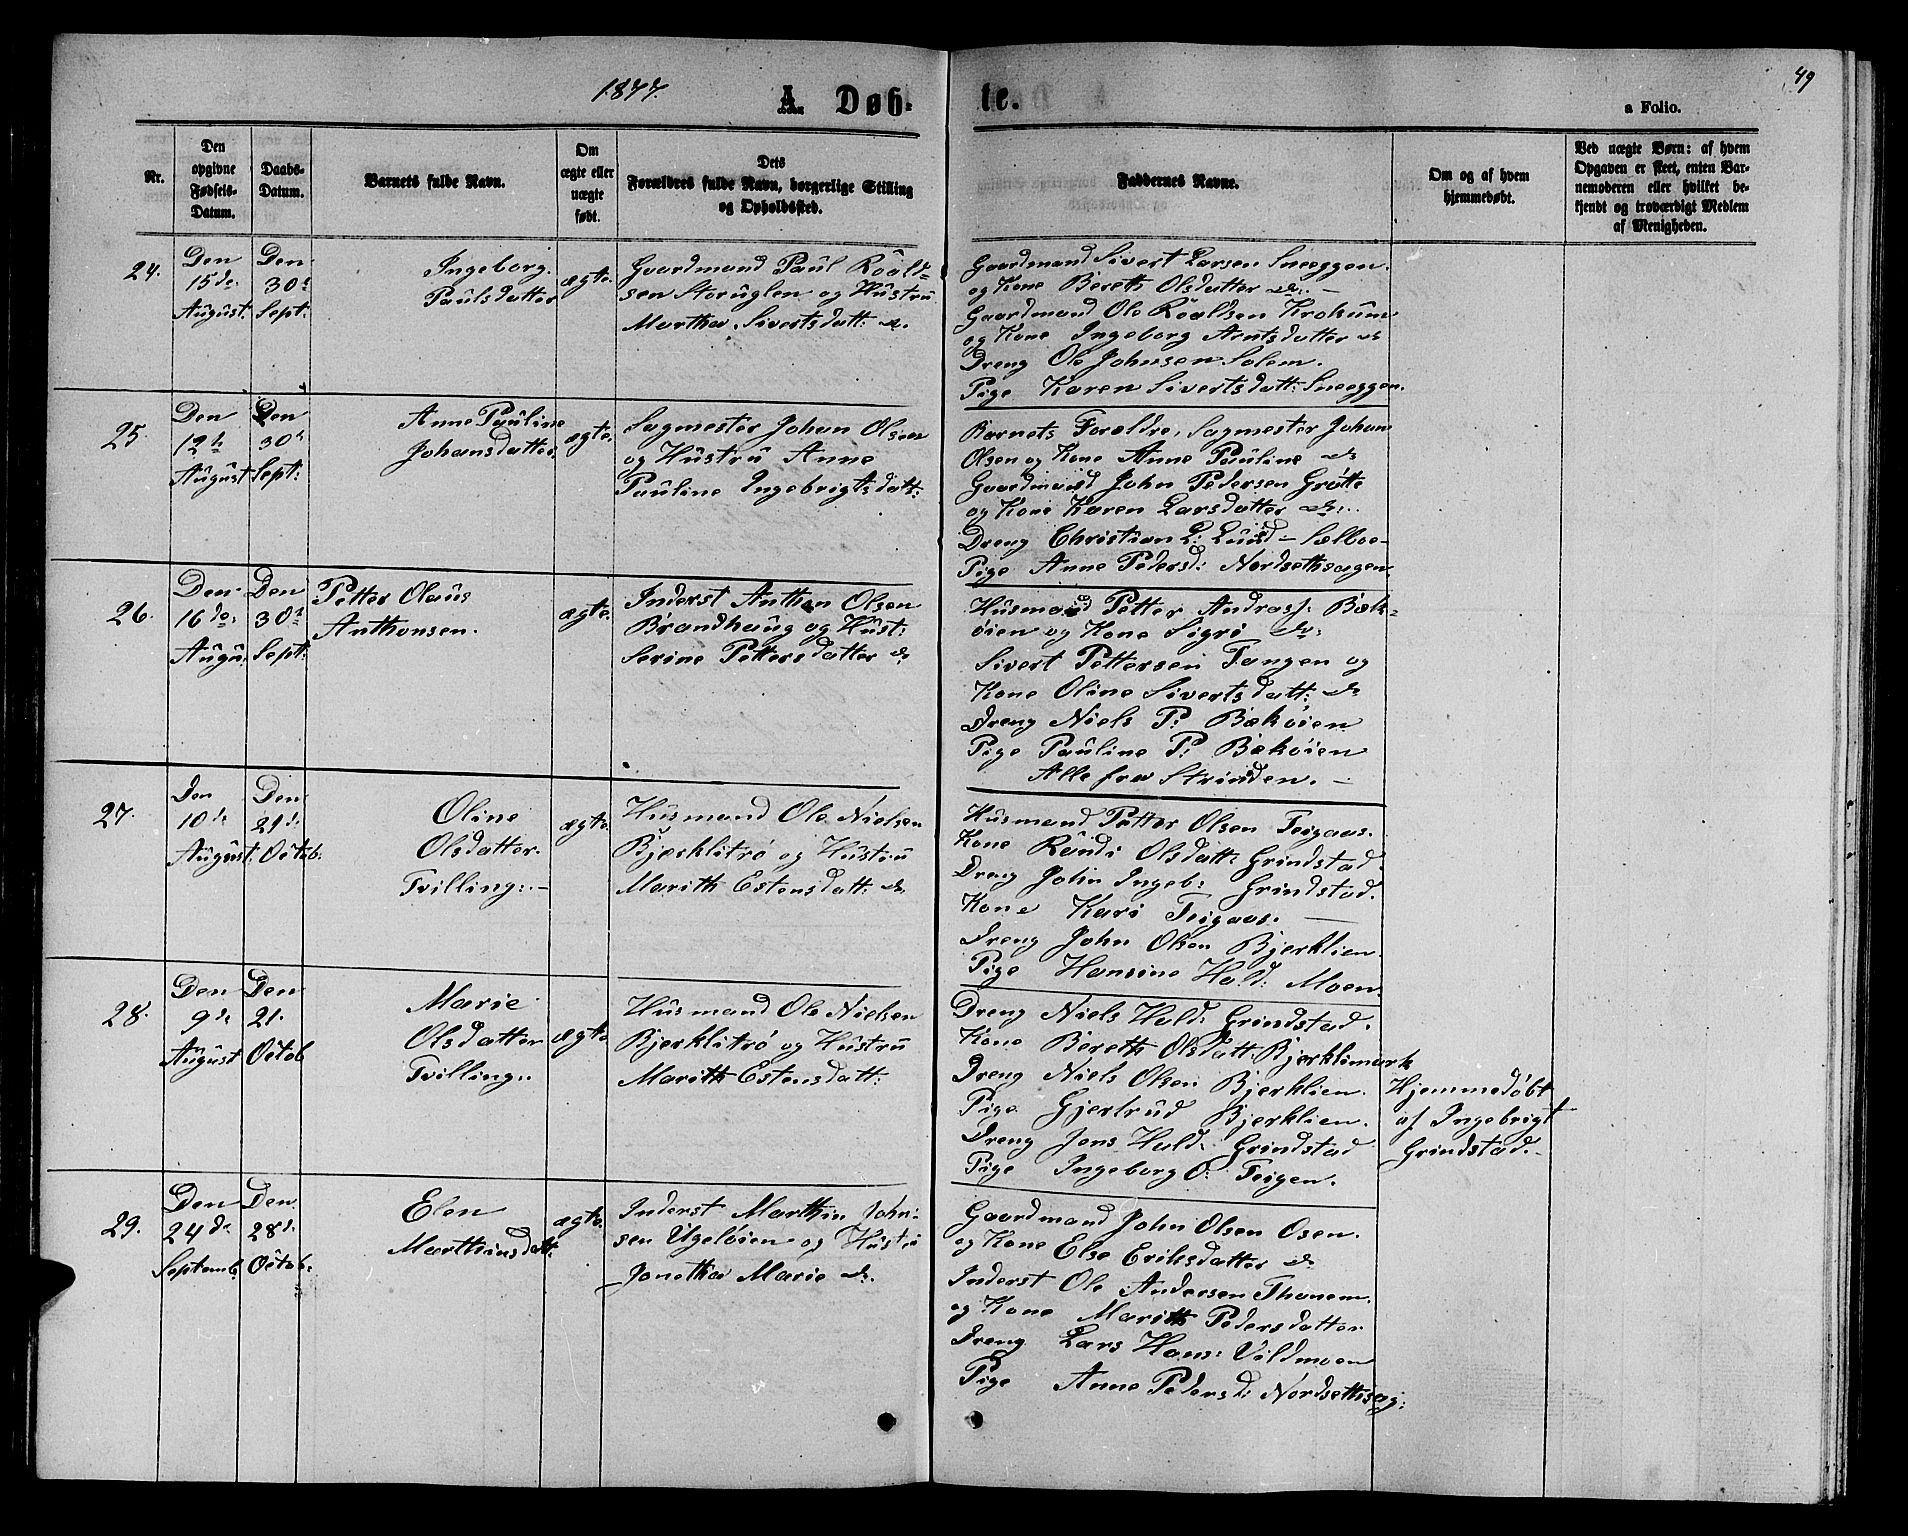 1877.
A. Døb-
te.
49
a Folio.
Nr.
Den
opgivne
Fødsels-
Datum.
Daabs-
Datum.
Barnets fulde Navn.
Om
ægte eller
uægte
født.
Dets
Forældres fulde Navn, borgerlige Stilling
og Opholdssted.
Faddernes Navne.
Om og af hvem
hjemmedøbt.
Ved uægte Børn: af hvem
Opgaven er skeet, enten Bar-
nemoderen eller hvilket be-
kjendt og troværdigt Medlem
af Menigheden.
24.
Den
15de
August.
Den
30te
Sept:
Ingeborg
Paulsdatter
ægte.
Gaardmand Paul Roald-
sen Storuglen og Hustru
Martha Sivertsdatt: do.
Gaardmand Sivert Larsen Sneeggen.
og Kone Bereth Olsdatter do. –
Gaardmand Ole Roaldsen Krokum
og Kone Ingeborg Arntsdatter do
Dreng Ole Johnsen Solem.
Pige Karen Sivertsdatt: Sneeggen.
25.
Den
12te
August
Den
30te
Sept:
Anne Pauline
Johansdatter.
ægte.
Sagmester Johan Olsen
og Hustru Anne
Pauline Ingebrigtsdatt:
Barnets Forældre, Sagmester Johan
Olsen og Kone Anne Pauline do
Gaardmand John Pedersen Grøtte
og Kone Karen Larsdatter do..
Dreng Christian L: Lund – Sælboe –
Pige Anne Pedersd: Nordsethsagen.
26.
Den
16de
Augu.
Den
30te
Sept:
Petter Olaus
Anthonsen.
ægte.
Inderst Anthon Olsen
Brandhaug og Hust:
Serine Pettersdatter do
Husmand Petter Andrass: Bæk-
øien og Kone Sigri do.
Sivert Pettersen Tangen og
Kone Oline Sivertsdatt: do
Dreng Niels P: Bækøien
Pige Pauline P: Bækøien
Alle fra Strinden. –
27.
Den
10de
August.
Den
21de
Octob:
Oline
Olsdatter.
Tvilling: –
ægte.
Husmand Ole Nielsen
Bjerklitrø og Hustru
Marith Estensdatt: do.
Husmand Petter Olsen Teigaas.
Kone Randi Olsdatt: Grindstad.
Dreng John Ingeb: Grindstad.
Kone Kari Teigaas. –
Dreng John Olsen Bjerklien.
Pige Hansine Hald: Moen.
28.
Den
9de
August
Den
21.
Octob
Marie
Olsdatter
Tvilling:.
ægte.
Husmand Ole Nielsen
Bjerklitrø og Hustru
Marith Estensdatt:
Dreng Niels Hald: Grindstad.
Kone Bereth Olsdatt: Bjerklimark
Dreng Niels Olsen Bjerklien.
Pige Gjertrud Bjerklien.
Dreng Jens Hald: Grindstad
Pige Ingeborg O: Teigen.
Hjemmedøbt
af Ingebrigt
Grindstad. –
29.
Den
24de
Septemb.
Den
28de
Octob:
Elen
Marthinsdatt:
ægte.
Inderst Marthin John:
sen Ugeløien og Hustru
Jonetha Marie do.
Gaardmand John Olsen Osen.
og Kone Else Eriksdatter do
Inderst Ole Andersen Thonem.
og Kone Marith Pedersdatter
Dreng Lars Hans: Vildmoen
Pige Anne Pedersd: Nordsethsag: